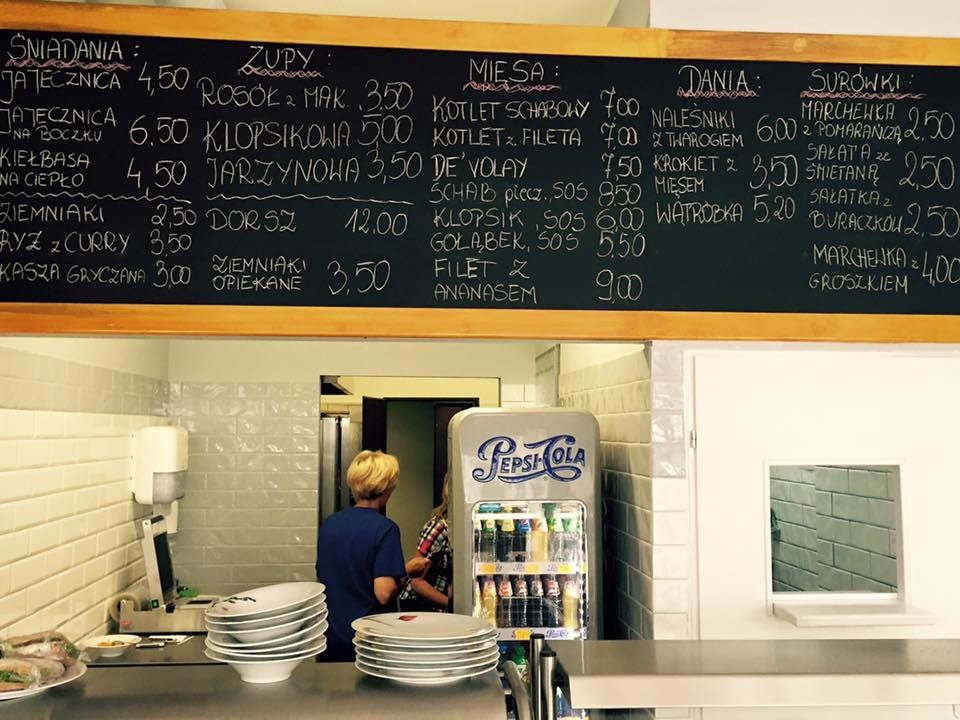 ŚNIADANIA:
JAJECZNICA 4,50
JAJECZNICA
NA BOCZKU 6,50
KIEŁBASA
NA CIEPŁO 4,50
ZIEMNIAKI 2,50
RYŻ z CURRY 3,50
KASZA GRYCZANA 3,00
ZUPY:
ROSÓŁ z MAK. 3,50
KLOPSIKOWA 5,00
JARZYNOWA 3,50
DORSZ 12,00
ZIEMNIAKI
OPIEKANE 3,50
MIĘSA:
KOTLET SCHABOWY 7,00
KOTLET z FILETA 7,00
DE'VOLAY 7,50
SCHAB piecz., SOS 8,50
KLOPSIK, SOS 6,00
GOŁĄBEK, SOS 5.50
FILET Z
ANANASEM 9,00
DANIA:
NALEŚNIKI
Z TWAROGIEM 6,00
KROKIET Z
MIĘSEM 3,50
WĄTRÓBKA 5,20
SURÓWKI:
MARCHEWKA
z POMARAŃCZĄ 2,50
SAŁATA ze
ŚMIETANĄ 2,50
SAŁATKA z
BURACZKÓW 2,50
MARCHEWKA z
GROSZKIEM 4,00
PEPSI-COLA